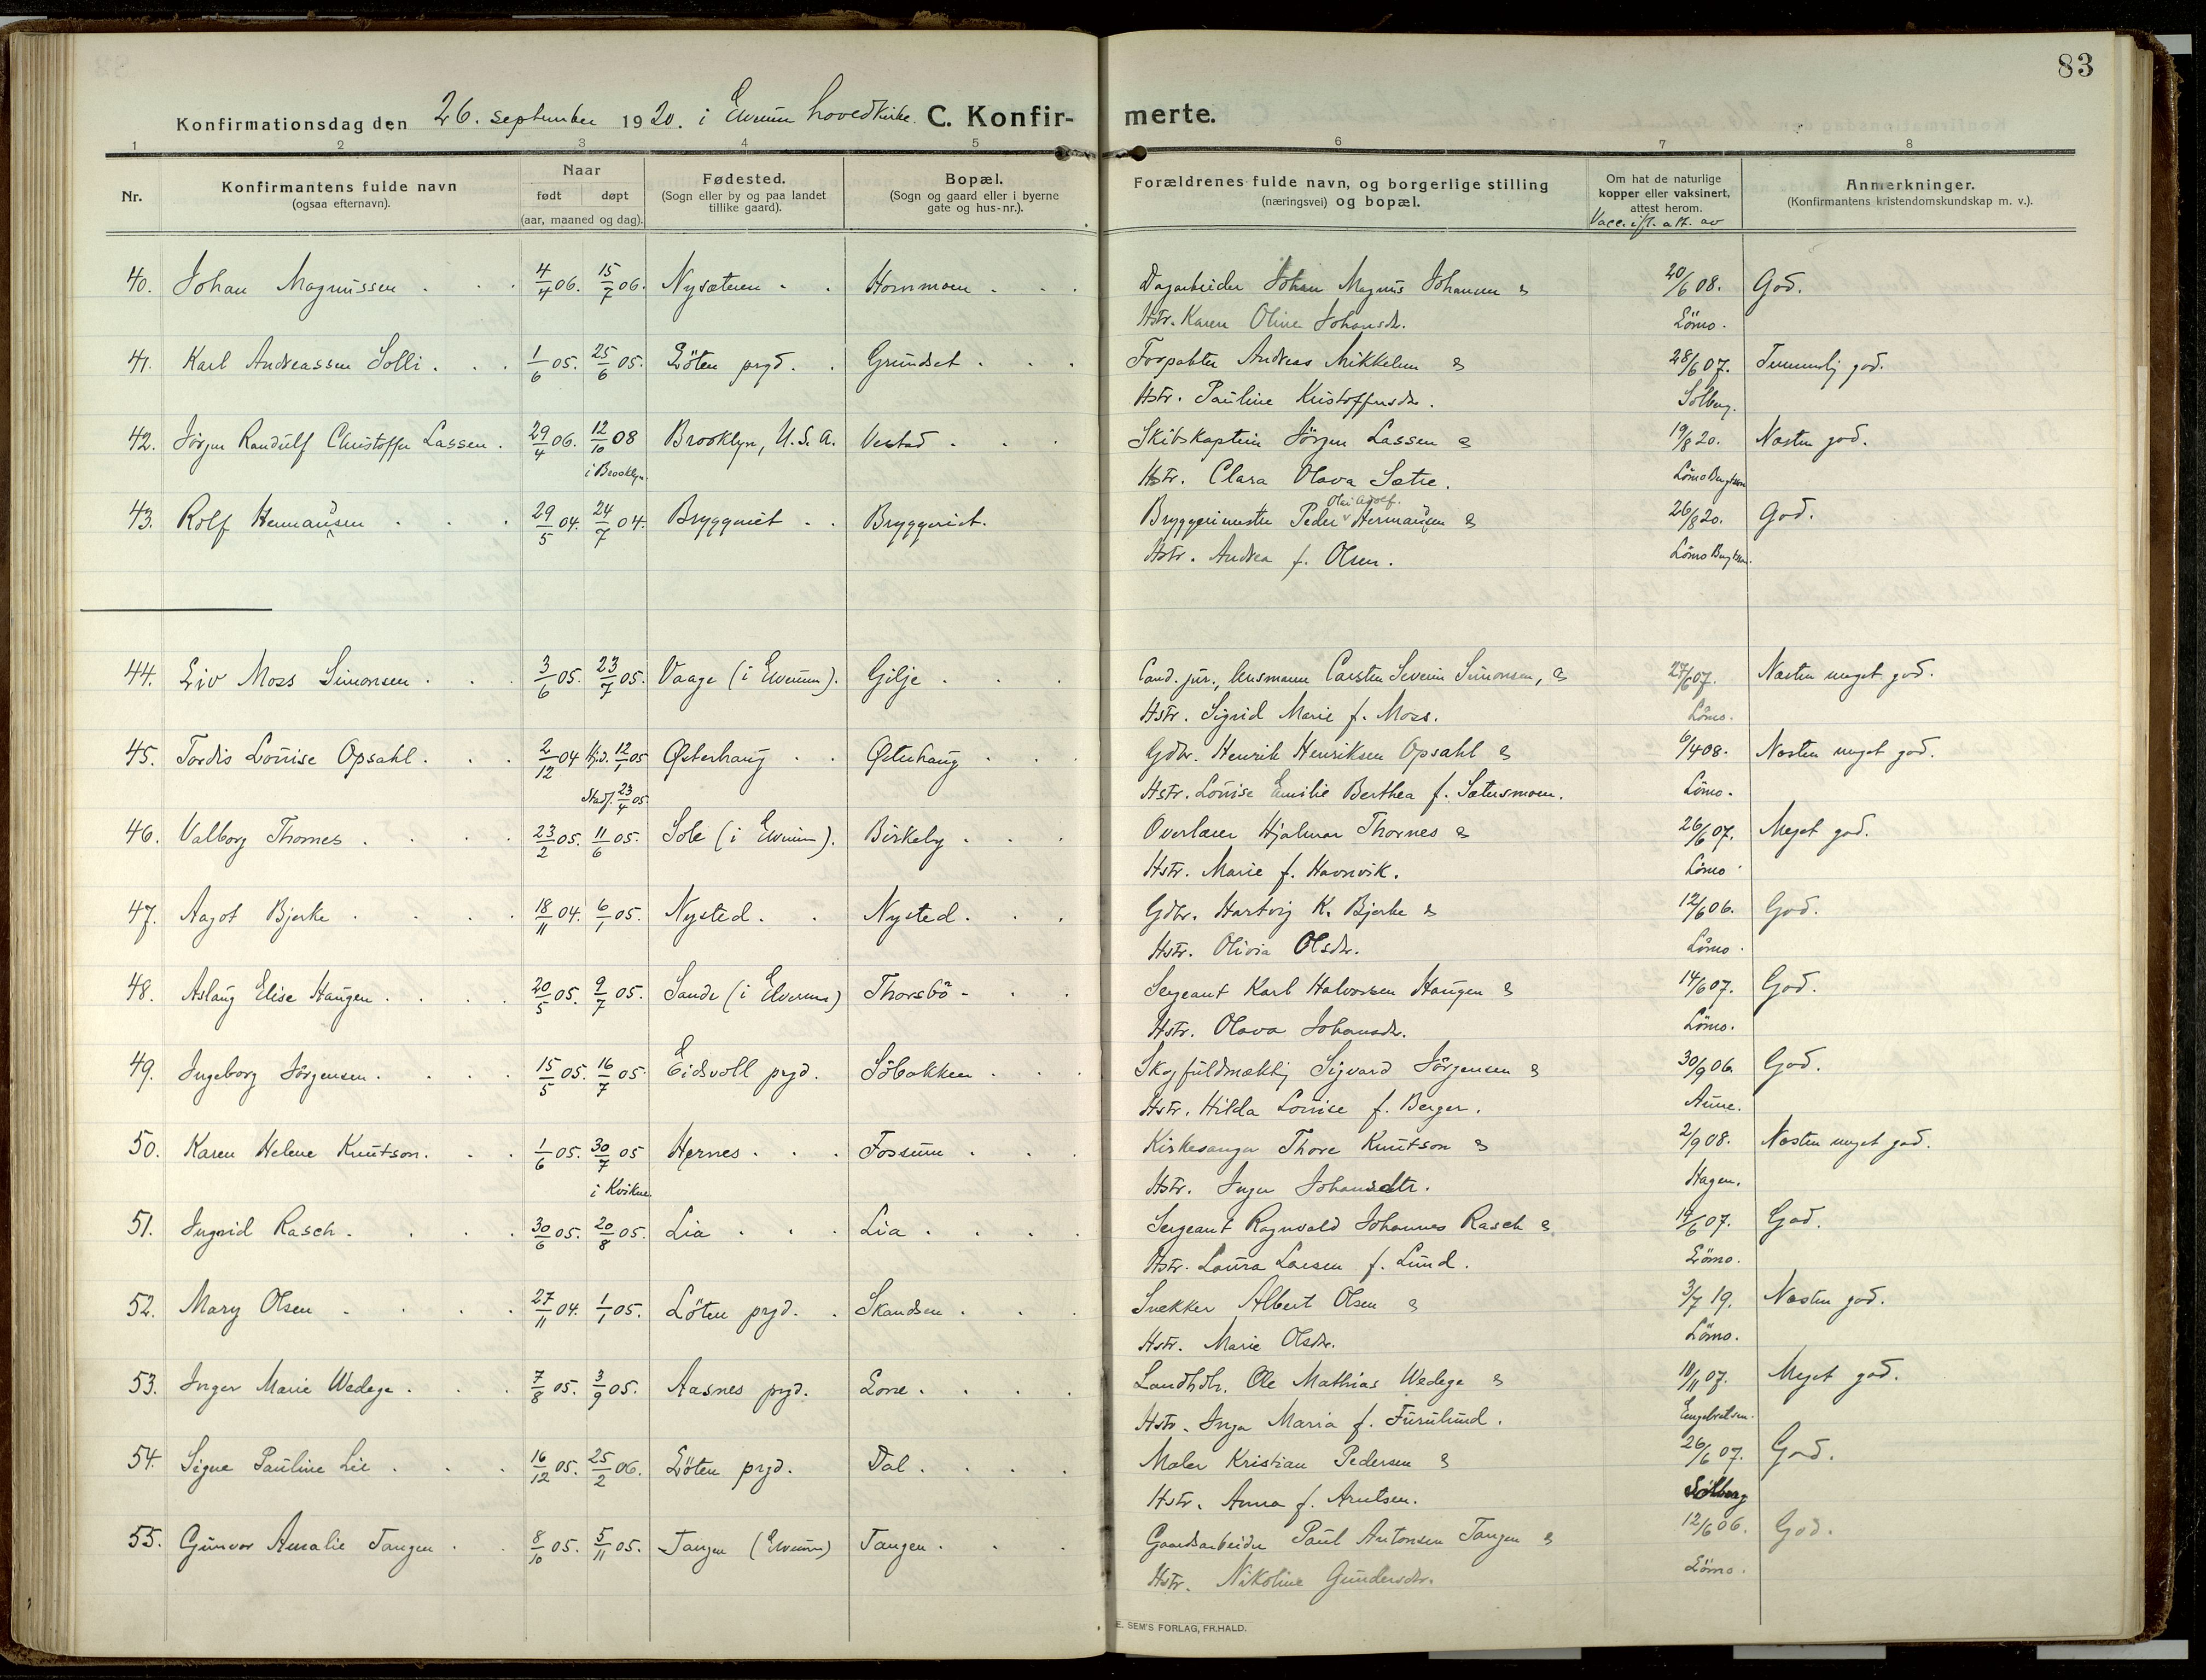 83
Konfirmationsdag den 26. september 1920. i Elverum hovedkirke. C. Konfir- merte.
1 2 3 4 5 6 7 8
Nr. Konfirmantens fulde navn (ogsaa efternavn). Naar født døpt (aar, maaned og dag). Fødested. (Sogn eller by og paa landet tillike gaard). Bopæl. (Sogn og gaard eller i byerne gate og hus-nr.). Forældrenes fulde navn, og borgerlige stilling (næringsvei) og bopæl. Om hat de naturlige kopper eller vaksinert, attest herom. Vacc. ifl. att. av Anmerkninger. (Konfirmantens kristendomskundskap m. v.).
40. Johan Magnussen 4/4 06. 15/7 06. Nysæteren Hornmoen Dagarbeider Johan Magnus Johansen & 20/6 08. God.
Hstr. Karen Oline Johansdr. Lömo.
41. Karl Andreassen Solli 1/6 05. 25/6 05. Löten prgd. Grundset Forpakter Andreas Mikkelsen & 28/6 07. Temmelig god.
Hstr. Pauline Kristoffersdr. Solberg.
42. Jörgen Randulf Christoffer Lassen. 29/4 06. 12/10 08 Brooklyn, U.S.A. Vestad Skibskaptein Jörgen Lassen & 19/8 20. Næsten god.
i Brooklyn. Hstr. Clara Olava Sætre. Lömo Bengtson
43. Rolf Hermansen 29/5 04. 24/7 04. Bryggeriet Bryggeriet. Bryggerimester Peder Olai Adolf. Hermansen & 26/8 20. God.
Hstr. Andrea f. Olsen. Lömo Bengtson.
44. Liv Moss Simonsen 3/6 05. 23/7 05. Vaage (i Elverum). Gilje Cand. jur., lensmann Carsten Severin Simonsen, & 27/6 07. Næsten meget god.
Hstr. Sigrid Marie f. Moss. Lömo.
45. Tordis Louise Opsahl 2/12 04 Hjd. 12/1 05 Østerhaug Østerhaug Gdbr. Henrik Henriksen Opsahl & 6/4 08. Næsten meget god.
Stadf. 23/4 05 Hstr. Louise Emilie Berthea f. Sætersmoen. Lömo.
46. Valborg Thornes 23/2 05. 11/6 05. Sole (i Elverum). Birkeby Overlærer Hjalmar Thornes & 26/6 07. Meget god.
Hstr. Marie f. Havnvik. Lömo
47. Aagot Bjerke 18/11 04. 6/1 05. Nysted. Nysted. Gdbr. Hartvig K. Bjerke & 12/6 06. God.
Hstr. Olivia Olsdr. Lömo.
48. Aslaug Elise Haugen 20/5 05. 9/7 05. Sande (i Elverum) Thorsbö Sergeant Karl Halvorsen Haugen & 14/6 07. God.
Hstr. Olava Johansdr. Lömo.
49. Ingeborg Jörgensen 15/5 05. 16/7 05. Eidsvoll prgd. Söbakken Skogfuldmæktig Sigvard Jörgensen & 30/9 06. God.
Hstr. Hilda Louise f. Berger. Aune.
50. Karen Helene Knutson. 1/6 05. 30/7 05 Hernes Fossum Kirkesanger Thore Knutson & 2/9 08. Næsten meget god.
i Kvikne. Hstr. Inger Johansdtr. Hagen.
51. Ingrid Rasch 30/6 05. 20/8 05. Lia Lia Sergeant Ragnvald Johannes Rasch & 19/6 07. God.
Hstr. Laura Laesen f. Lund. Lömo.
52. Mary Olsen 27/11 04. 1/1 05. Löten prgd. Skandsen Snekker Albert Olsen & 3/7 19. Næsten god.
Hstr. Marie Olsdr. Lömo.
53. Inger Marie Wedege 7/8 05. 3/9 05. Aasnes prgd. Lone Landhdl. Ole Mathias Wedege & 10/11 07. Meget god.
Hstr. Inga Maria f. Furulund. Engebretsen.
54. Signe Pauline Lie 16/12 05. 25/2 06. Löten prgd. Dal Maler Kristian Pedersen & 26/6 07. God.
Hstr. Anna f. Arntsen. Solberg
55. Gunvor Amalie Tangen 8/10 05. 5/11 05. Tangen (Elverum) Tangen Gaardsarbeider Paul Antonsen Tangen & 12/6 06. God.
Hstr. Nikoline Gundersdr. Lömo.
E. SEM'S FORLAG, FR.HALD.